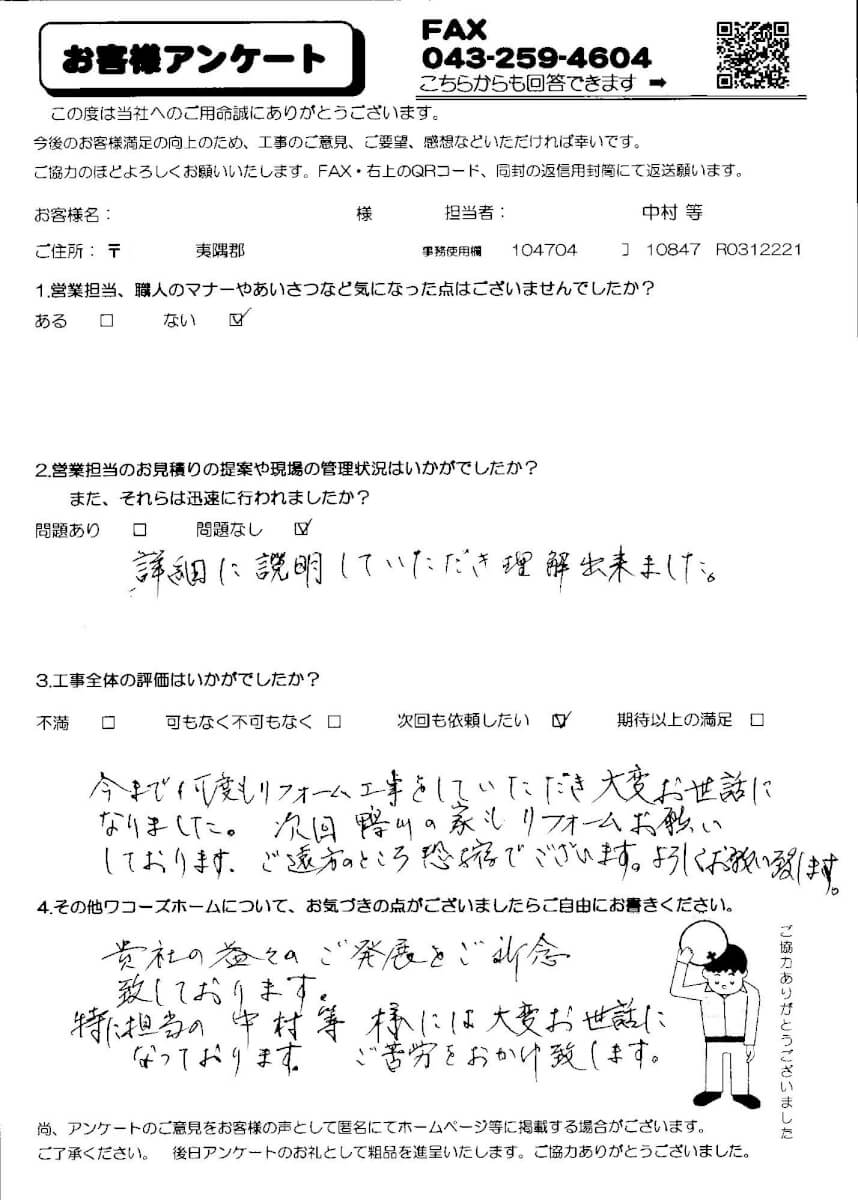 お客様アンケート
FAX
043-259-4604
こちらからも回答できます ➡
この度は当社へのご用命誠にありがとうございます。
今後のお客様満足の向上のため、工事のご意見、ご要望、感想などいただければ幸いです。
ご協力のほどよろしくお願いいたします。FAX・右上のQRコード、同封の返信用封筒にて返送願います。
お客様名： 様 担当者： 中村 等
ご住所：〒 夷隅郡 事務使用欄 104704 〕 10847 R0312221
1.営業担当、職人のマナーやあいさつなど気になった点はございませんでしたか？
ある □ ない ☑
2.営業担当のお見積りの提案や現場の管理状況はいかがでしたか？
また、それらは迅速に行われましたか？
問題あり □ 問題なし ☑
詳細に説明していただき理解出来ました。
3.工事全体の評価はいかがでしたか？
不満 □ 可もなく不可もなく □ 次回も依頼したい ☑ 期待以上の満足 □
今まで何度もリフォーム工事をしていただき大変お世話に
なりました。 次回鴨川の家もリフォームお願い
しております。ご遠方のところ恐縮でございます。よろしくお願い致します。
4.その他ワコーズホームについて、お気づきの点がございましたらご自由にお書きください。
貴社の益々のご発展をご祈念
致しております。
特に担当の中村等様には大変お世話に
なっております。 ご苦労をおかけ致します。
ご協力ありがとうございました
尚、アンケートのご意見をお客様の声として匿名にてホームページ等に掲載する場合がございます。
ご了承ください。 後日アンケートのお礼として粗品を進呈いたします。ご協力ありがとうございました。